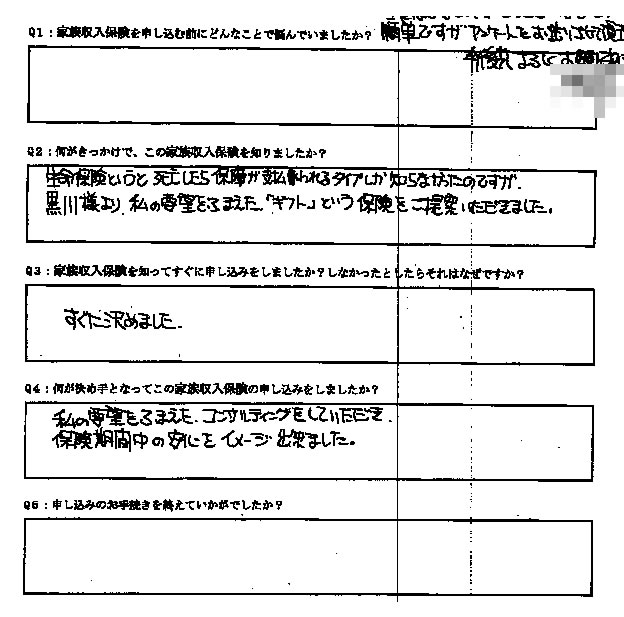 簡単ですがアンケートをお送りさせて頂
今後共よろしくお願い致
Q1：家族収入保険を申し込む前にどんなことで悩んでいましたか？
Q2：何がきっかけで、この家族収入保険を知りましたか？
生命保険というと死亡したら保障が支払われるタイプしか知らなかったのですが、
黒川様より、私の要望をふまえた「ギフト」という保険をご提案いただきました。
Q3：家族収入保険を知ってすぐに申し込みをしましたか？しなかったとしたらそれはなぜですか？
すぐに決めました。
Q4：何が決め手となってこの家族収入保険の申し込みをしましたか？
私の要望をふまえた、コンサルティングをしていただき、
保険期間中の安心をイメージ出来ました。
Q5：申し込みのお手続きを終えていかがでしたか？